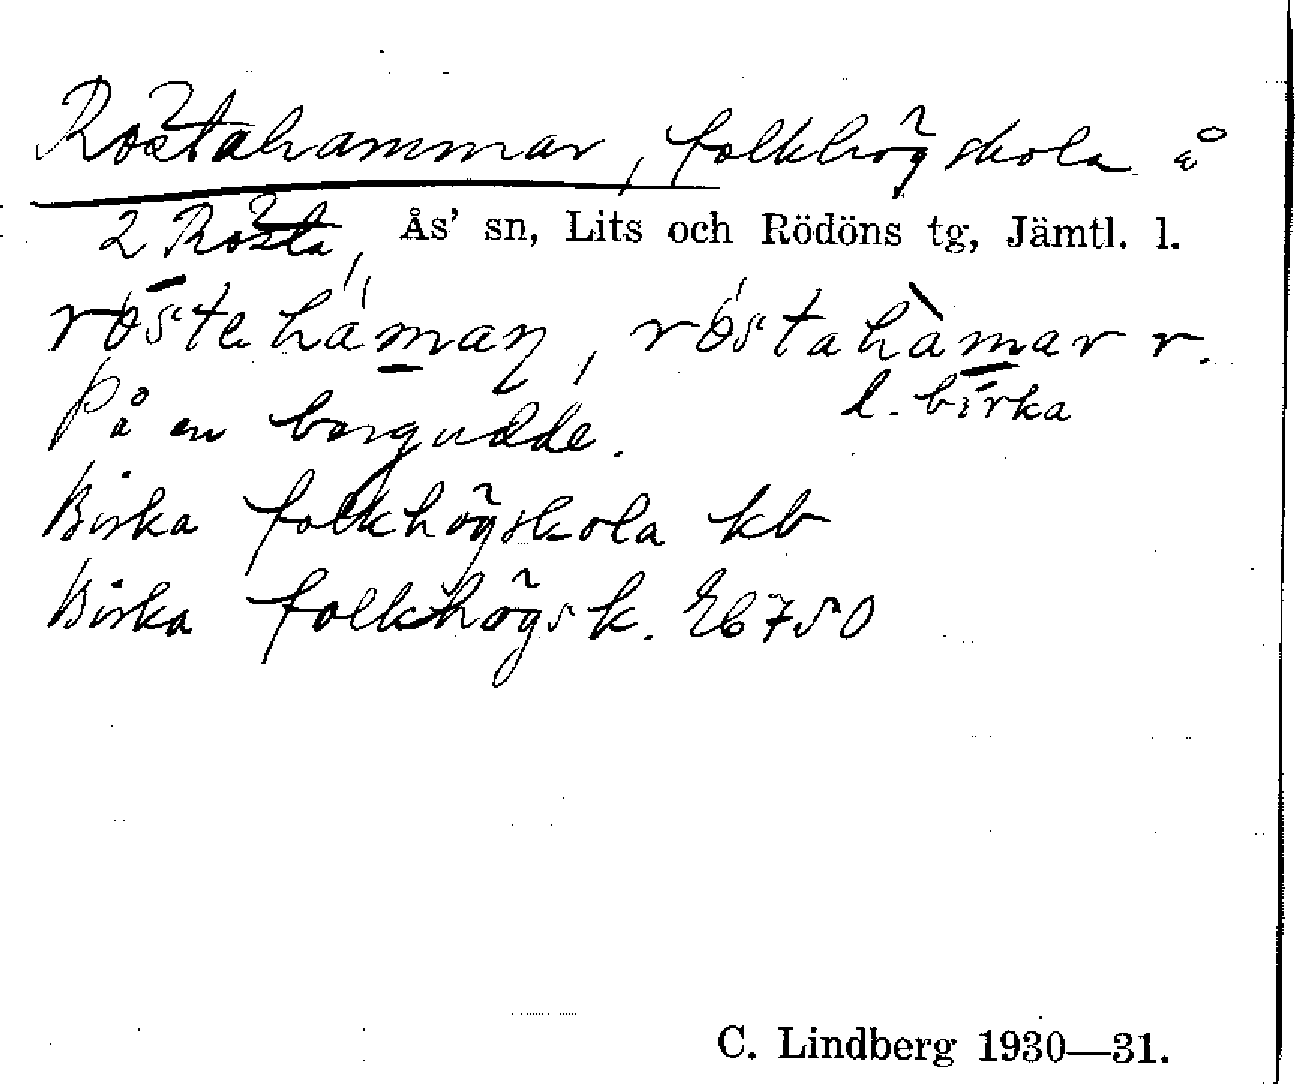 Röstahammar, folkhögskola å
2 Rösta, Ås' sn, Lits och Rödöns tg, Jämtl. l.
röstahàman, röstahàmar r.
l. bi̅rka
På en bergudde.
Birka folkhögskola kb
Birka folkhögsk. Eb 750
C. Lindberg 1930—31.